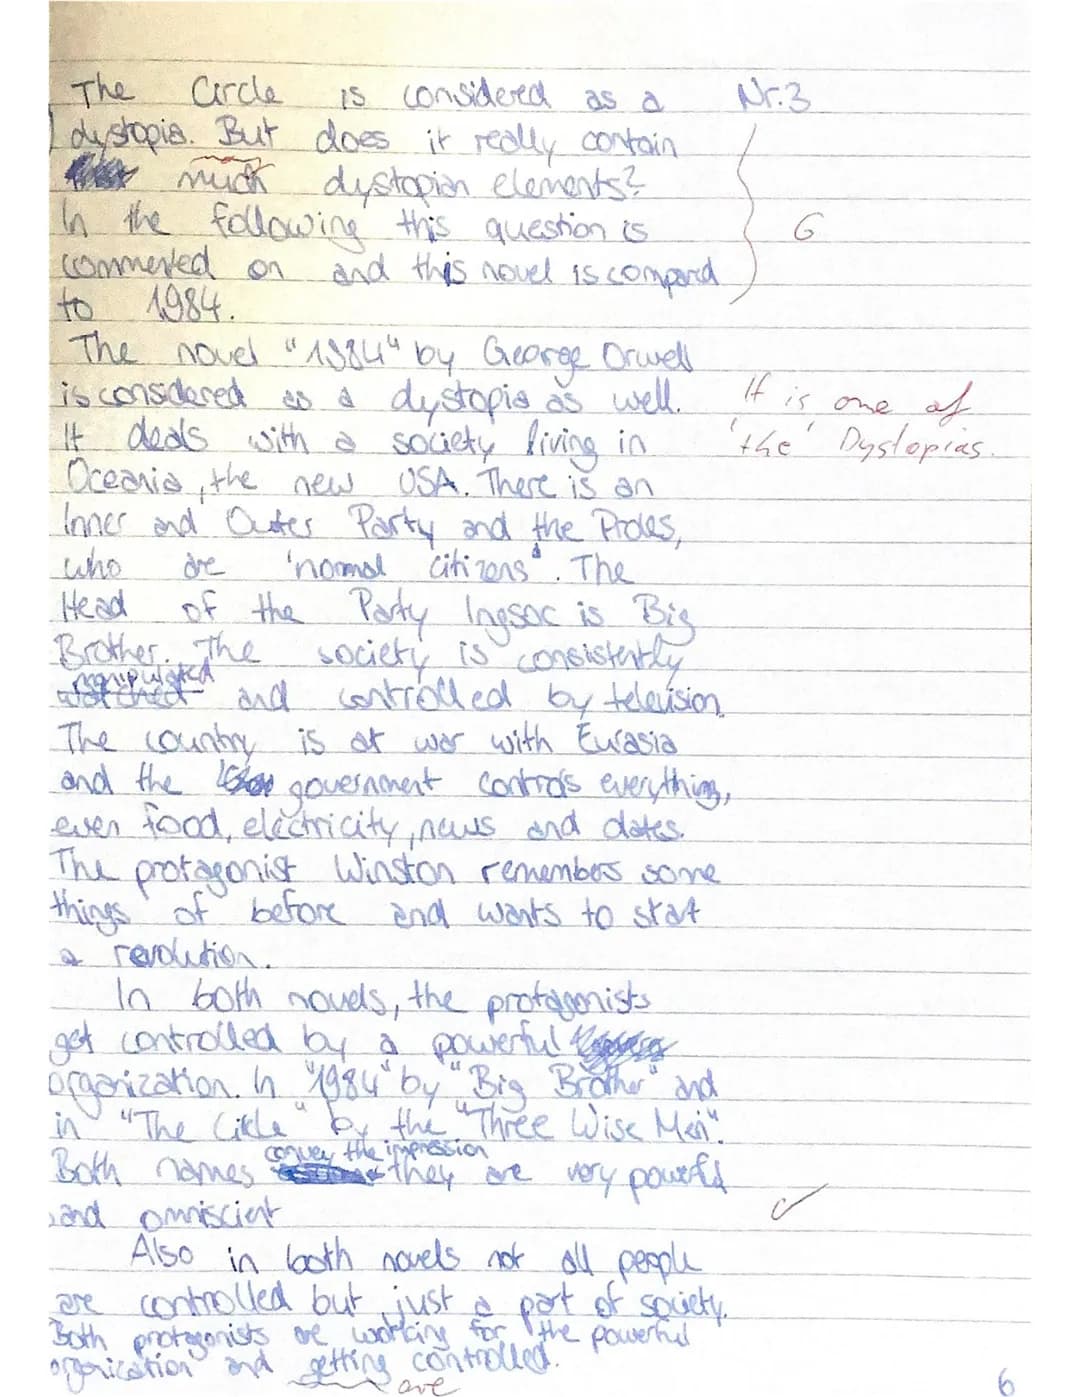 The Circle is considered as a Nr.3
dystopia. But does it really contain
much dystopian elements?
In the following this question is G
commented on and this novel is compard
to 1984.
The novel "1984" by George Orwell
is considered as a dystopia as well. It is one of
It deals with a society living in 'the' Dystopias.
Oceania, the new USA. There is an
Inner and Outer Party and the Proles,
who are 'normal citizens'. The
Head of the Party Ingsoc is Big
Brother. The society is consistently
manipulated
watched and controlled by television.
The country is at war with Eurasia
and the government controls everything,
even food, electricity, news and dates.
The protagonist Winston remembers some
things of before and wants to start
a revolution.
In both novels, the protagonists
get controlled by a powerful
organization. In "1984" by "Big Brother" and
in "The Cirlcle" by the "Three Wise Men".
convey the impression
Both names they are very powerful
and omniscient
Also in both novels not all people
are controlled but just a part of society.
Both protagonists are working for the powerful
organication and getting controlled.
are
6